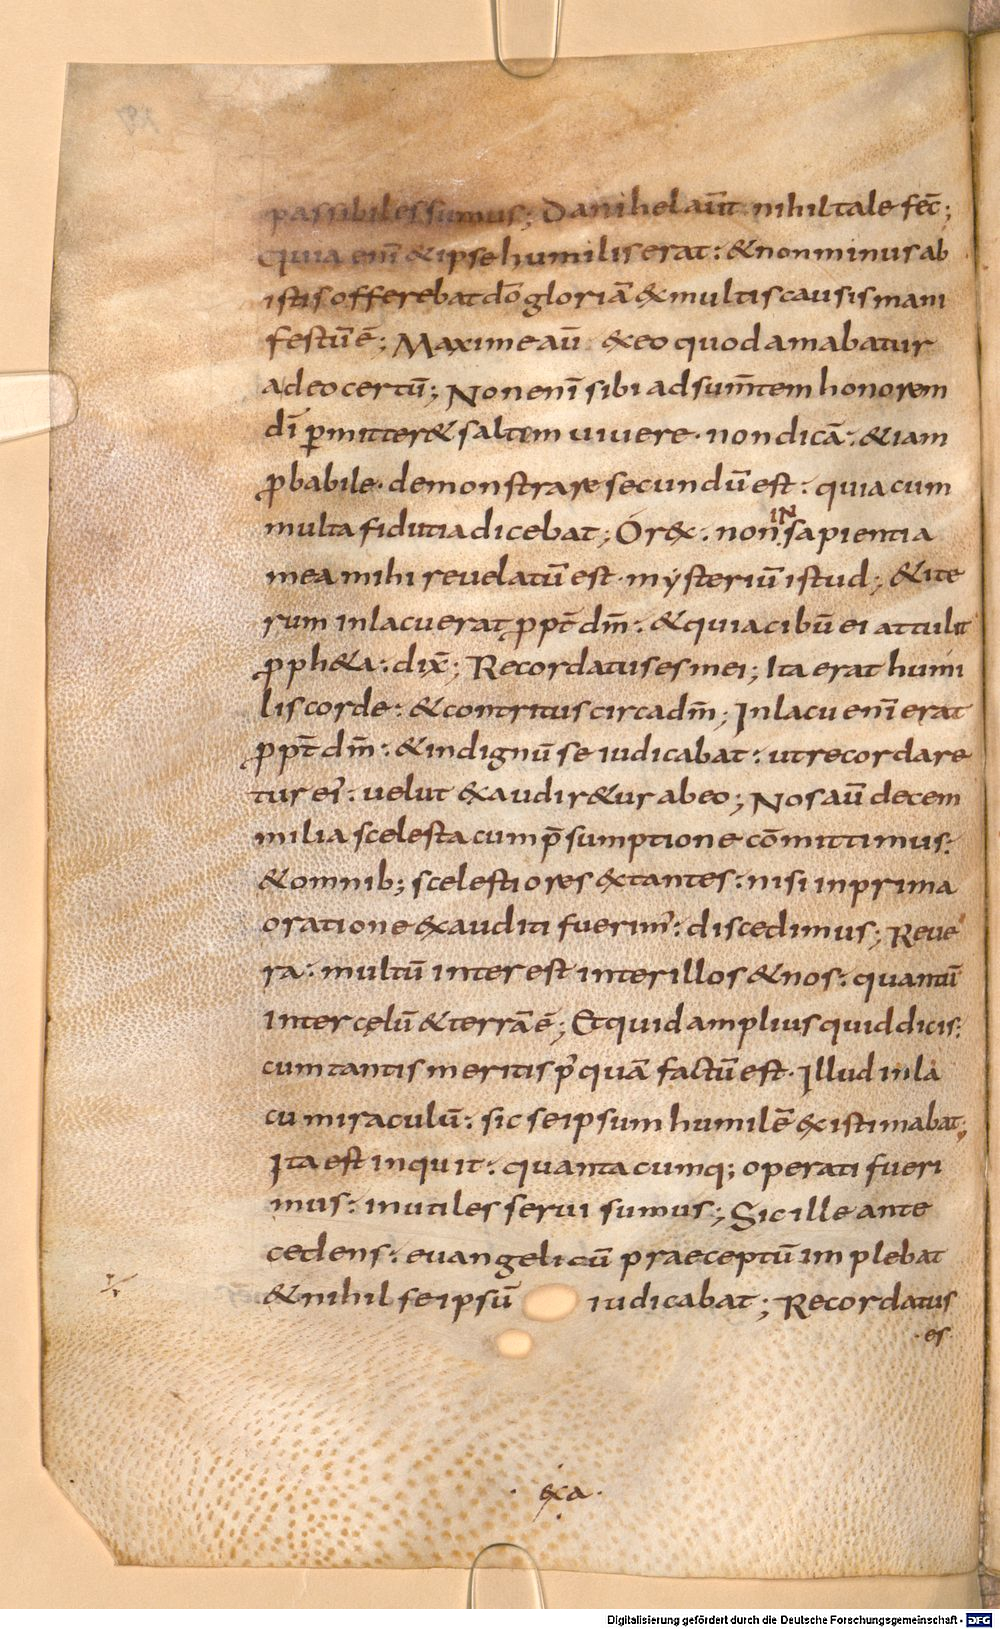 passibiles sumus; Danihel aūt nihil tale fec̄;
Quia eni̅ & ipse humilis erat: & non minus ab
istis offerebat dō gloriā & multis causis mani
festū ē; Maxime aū & eo quod amabatur
adeo certū; Non eni̅ sibi adsum̄tem honorem
dī p̱mitter& saltem vivere· non dicā: & iam
ꝓbabile· demonstrare secundū est: quia cum
multa fidutia dicebat; O rex· non IN sapientia
mea mihi revelatū est· mysteriū istud; & ite
rum in lacu erat ꝓpt̄ dm̄: & quia cibū ei attulit
ꝓph&a: dix̄; Recordatus es mei; Ita erat humi
lis corde: & contritus circa dm̄; In lacu eni̅ erat
ꝓpt̄ dm̄: & indignū se iudicabat: ut recordare
tur ei': velut exaudir&ur ab eo; Nos aū decem
milia scelesta cum p̄sumptione cōmittimus:
& omnib; scelestiores extantes: nisi in prima
oratione exauditi fuerim': discedimus; Reve
ra: multū interest inter illos & nos: quantū
inter cęlū & terrā ē; Et quid amplius quid dicis:
cum tantis meritis p' quā factū est· Illud in la
cu miraculū: sic seipsum humilē existimabat;
Ita est inquit: quantacumq; operati fueri
mus: inutiles servi sumus; Sic ille ante
cedens: evangelicū praeceptū implebat
& nihil seipsū iudicabat; Recordatus
·es·
·exa·
Digitalisierung gefördert durch die Deutsche Forschungsgemeinschaft - DFG